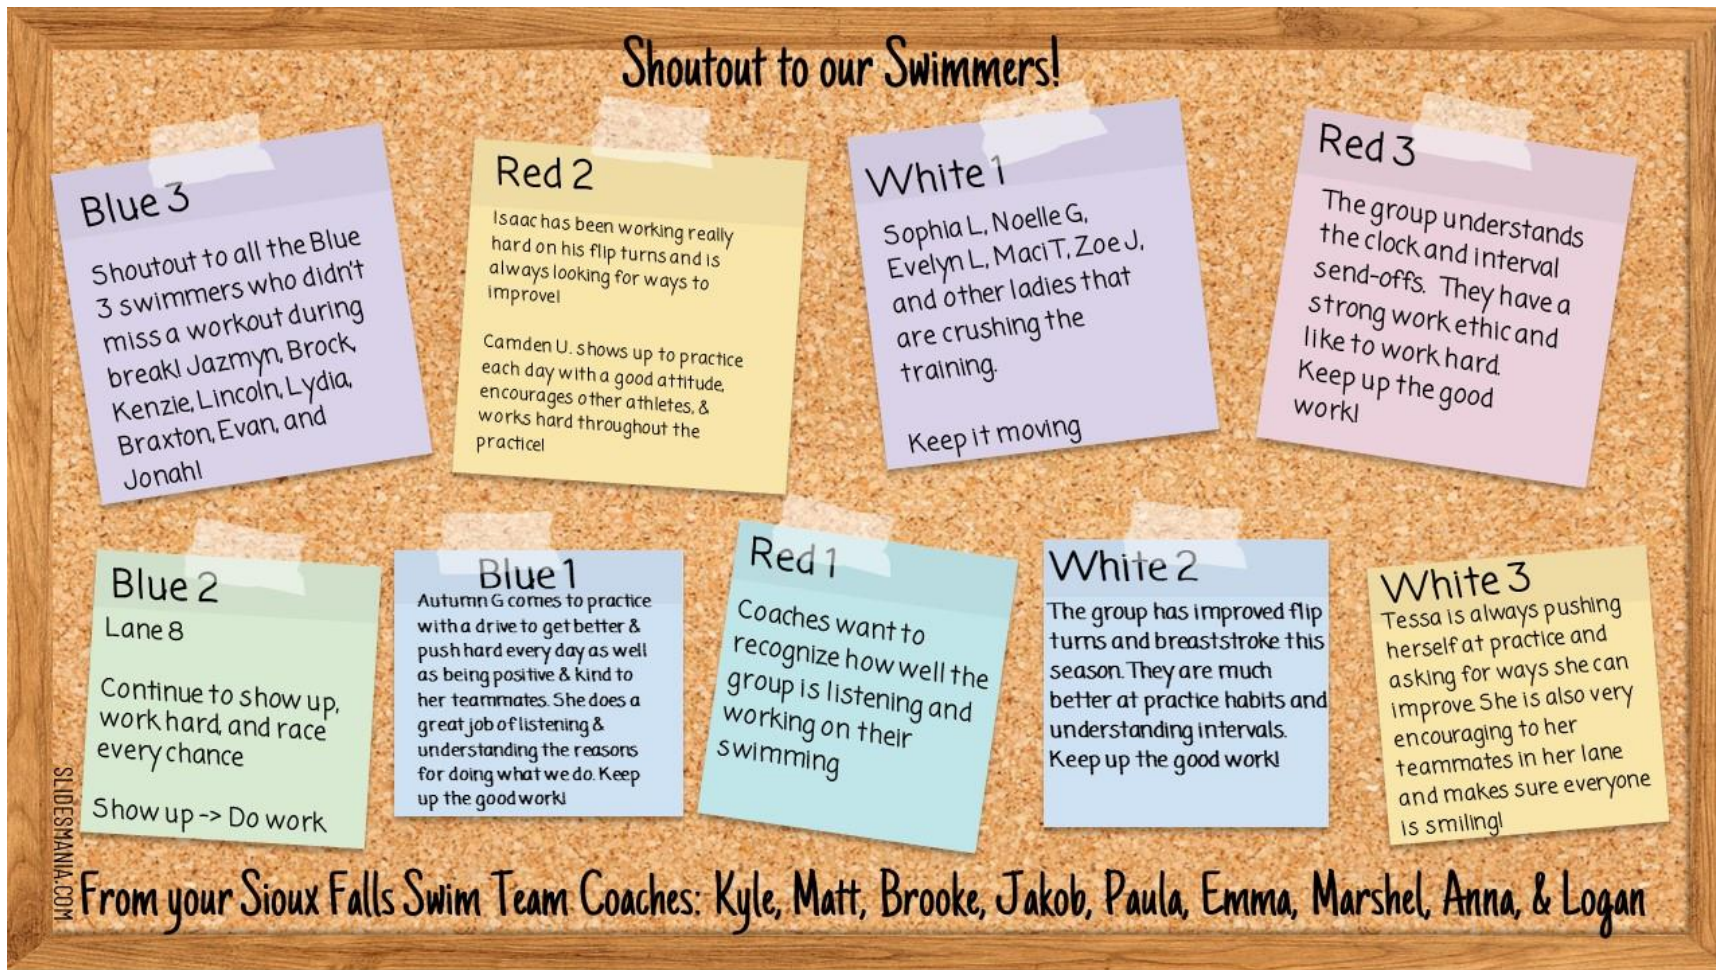 Shoutout to our Swimmers!
Blue 3
Shoutout to all the Blue
3 swimmers who didn't
miss a workout during
break! Jazmyn, Brock,
Kenzie, Lincoln, Lydia,
Braxton, Evan, and
Jonah!
Red 2
Isaac has been working really
hard on his flip turns and is
always looking for ways to
improve!
Camden U. shows up to practice
each day with a good attitude,
encourages other athletes, &
works hard throughout the
practice!
White 1
Sophia L, Noelle G,
Evelyn L, Maci T, Zoe J,
and other ladies that
are crushing the
training.
Keep it moving
Red 3
The group understands
the clock and interval
send-offs. They have a
strong work ethic and
like to work hard.
Keep up the good
work!
Blue 2
Lane 8
Continue to show up,
work hard, and race
every chance
Show up -> Do work
Blue 1
Autumn G comes to practice
with a drive to get better &
push hard every day as well
as being positive & kind to
her teammates. She does a
great job of listening &
understanding the reasons
for doing what we do. Keep
up the good work!
Red 1
Coaches want to
recognize how well the
group is listening and
working on their
swimming
White 2
The group has improved flip
turns and breaststroke this
season. They are much
better at practice habits and
understanding intervals.
Keep up the good work!
White 3
Tessa is always pushing
herself at practice and
asking for ways she can
improve. She is also very
encouraging to her
teammates in her lane
and makes sure everyone
is smiling!
SLIDESMANIA.COM
From your Sioux Falls Swim Team Coaches: Kyle, Matt, Brooke, Jakob, Paula, Emma, Marshel, Anna, & Logan